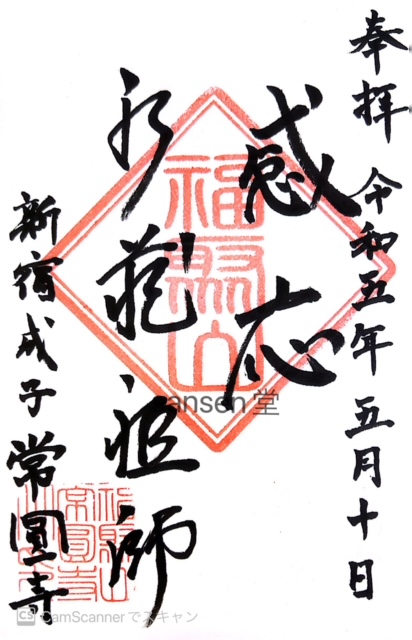 奉拝 令和五年 五月十日
感応
祖師
新宿成子 常圓寺
福聚山
ansen堂
CS CamScannerでスキャン